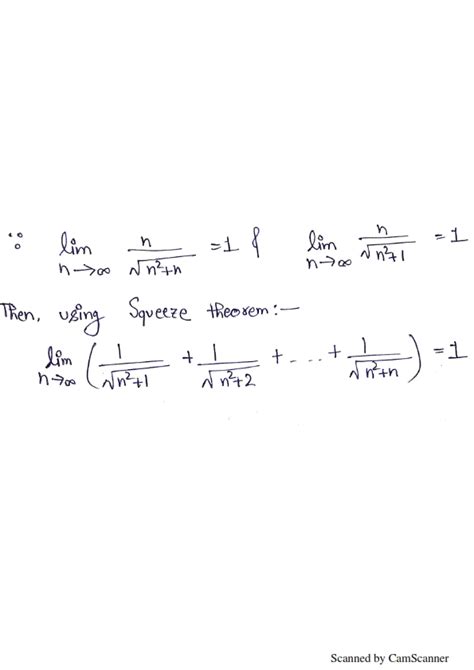 ∵ lim n→∞ n/√(n²+n) = 1 & lim n→∞ n/√(n²+1) = 1
Then, using Squeeze theorem:—
lim n→∞ (1/√(n²+1) + 1/√(n²+2) + ... + 1/√(n²+n)) = 1
Scanned by CamScanner